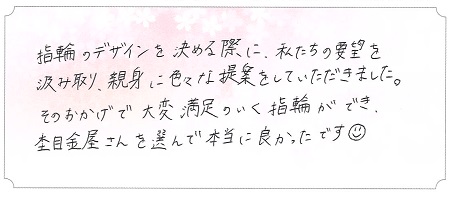 指輪のデザインを決める際に、私たちの要望を
汲み取り、親身に色々な提案をしていただきました。
そのおかげで大変満足のいく指輪ができ、
杢目金屋さんを選んで本当に良かったです☺